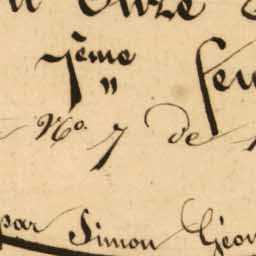 Onze
7ème
"
No. 7 de
par Simon Géor